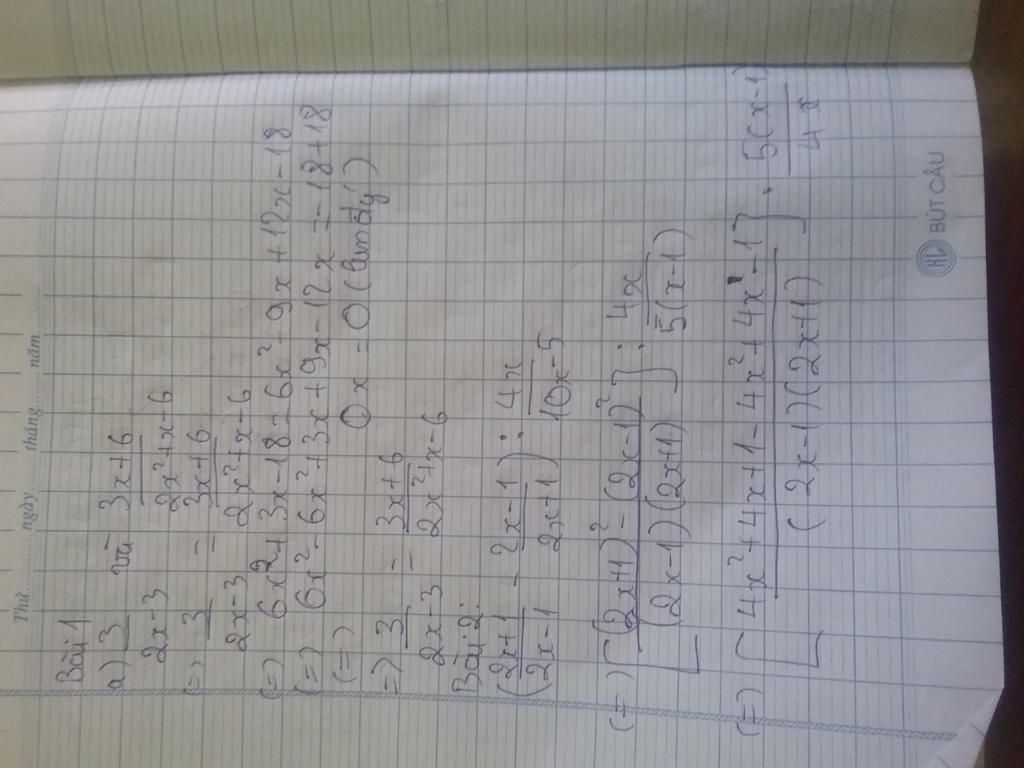 Thứ............ ngày ......... tháng ......... năm .........
Bài 1
a) 3/(2x-3) và (3x+6)/(2x²+x-6)
(=) 3/(2x-3) = (3x+6)/(2x²+x-6)
(=) 6x²+3x-18=6x²-9x+12x-18
(=) 6x²-6x²+3x+9x-12x=-18+18
(=) 0x=0 (luôn đúng)
=) 3/(2x-3) = (3x+6)/(2x²+x-6)
Bài 2:
((2x+1)/(2x-1) - (2x-1)/(2x+1)) : 4x/(10x-5)
(=) [((2x+1)²-(2x-1)²)/((2x-1)(2x+1))] : 4x/(5(x-1))
(=) [(4x²+4x+1-4x²+4x-1)/((2x-1)(2x+1))] . 5(x-1)/4x
BÚT CÂU